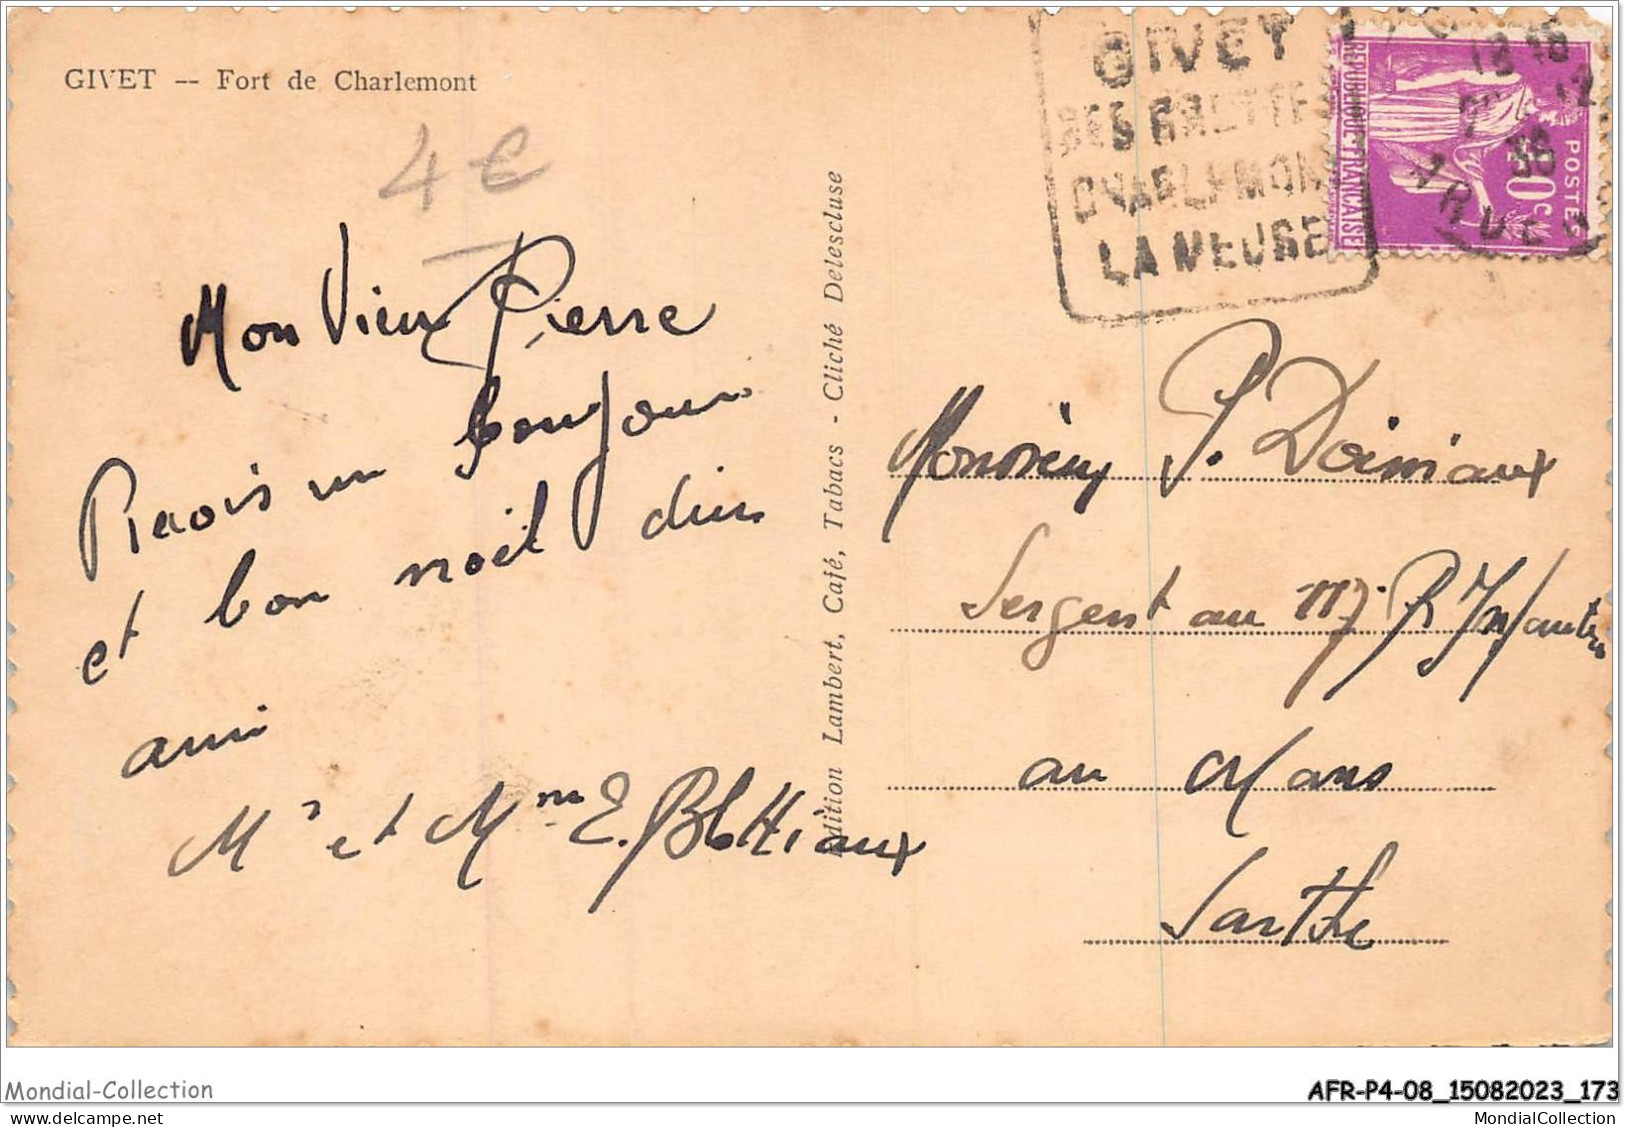 GIVET -- Fort de Charlemont
4€
Mon Vieux Pierre
Recois un bonjour
et bon noël d'un
ami
Mr et Mme E. Blottiaux
Edition Lambert, Café, Tabacs - Cliché Delescluse
GIVET
SES GROTTES
CHARLEMONT
LA MEUSE
REPUBLIQUE FRANCAISE
POSTES
40c
18 15
36
Monsieur P. Doiniaux
Sergent au 117 R Infanterie
au Mans
Sarthe
Mondial-Collection
AFR-P4-08_15082023_173
MondialCollection